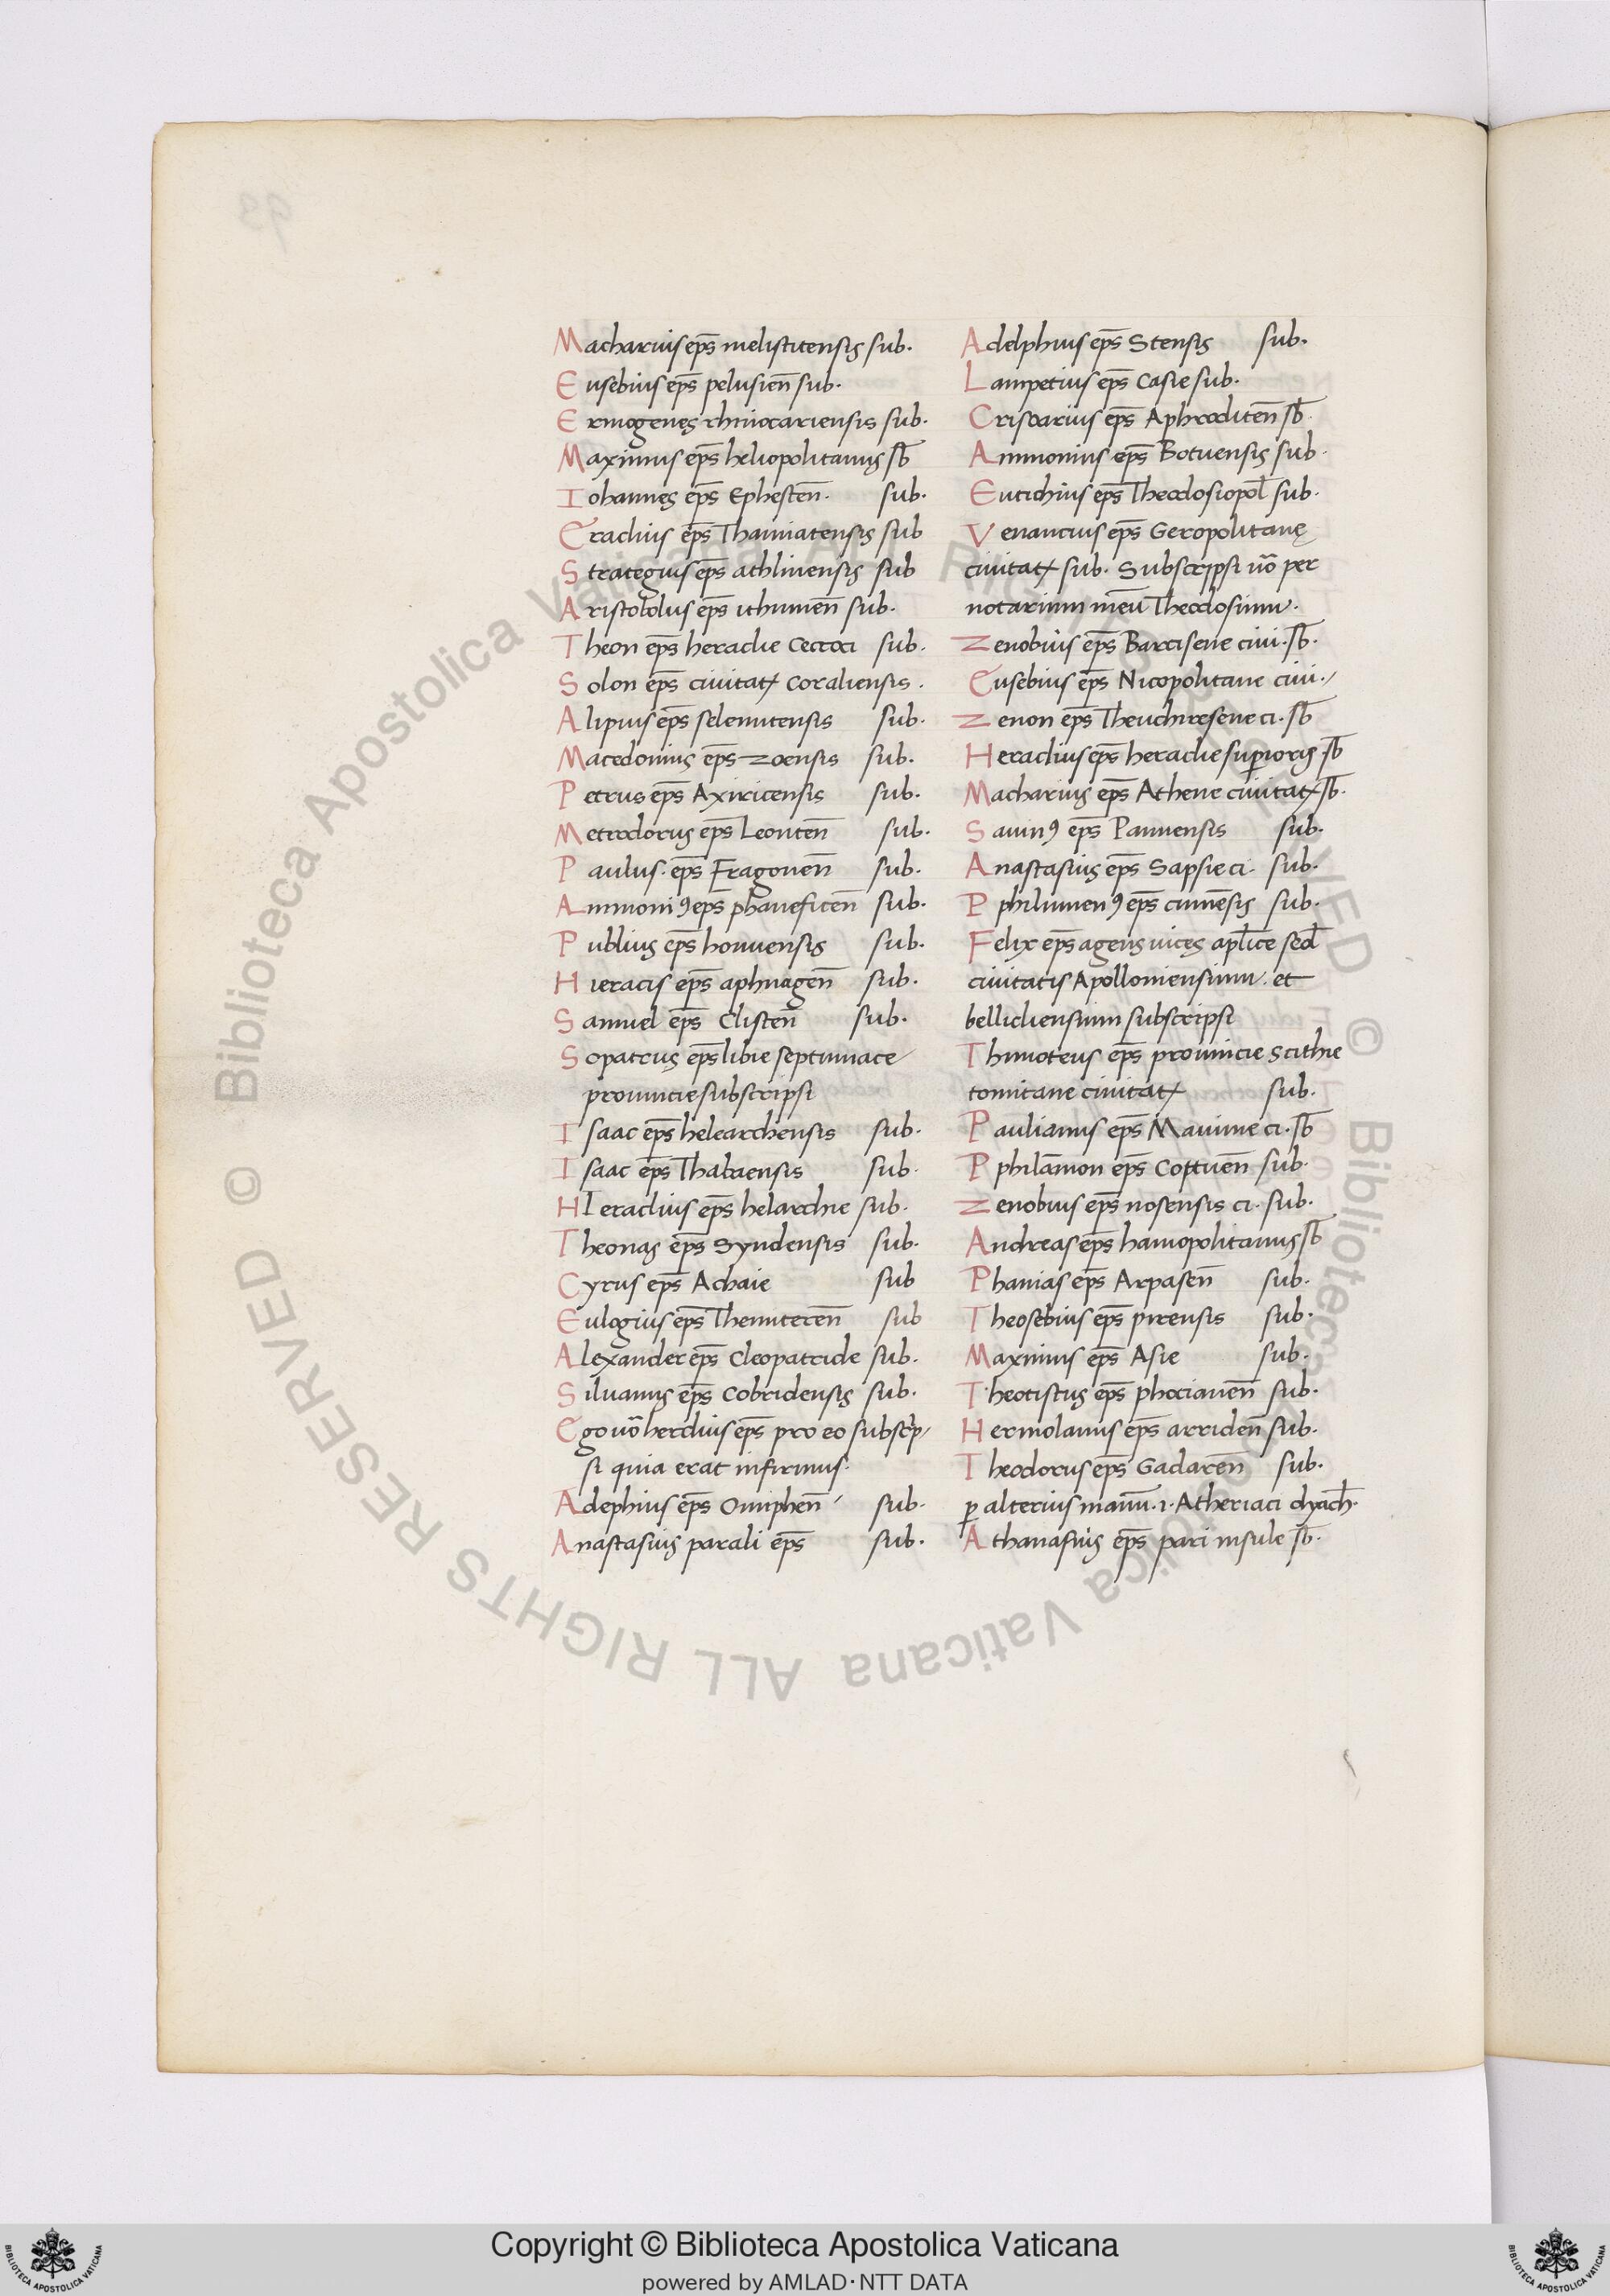 Macharius ep̄s melistitensis sub.
Eusebius ep̄s pelusien̄ sub.
Ermogenes rhinocariensis sub.
Maximus ep̄s heliopolitanus sb̄
Iohannes ep̄s Ephesten̄. sub.
Eraclius ep̄s Thainiatensis sub
Strategius ep̄s athlinensis sub
Aristobolus ep̄s ithinnen̄ sub.
Theon ep̄s heraclie Cectoci sub.
Solon ep̄s ciuitatꝭ Coraliensis.
Alipius ep̄s selenutensis sub.
Macedonius ep̄s zoensis sub.
Petrus ep̄s Axiricensis sub.
Metrodorus ep̄s Leonten̄ sub.
Paulus. ep̄s Fragonen̄ sub.
Ammoniꝯ ep̄s phaneficen̄ sub.
Publius ep̄s honuensis sub.
Hieracis ep̄s aphnagen̄ sub.
Samuel ep̄s Clisten̄ sub.
Sopatrus ep̄s libie septimiace
prouincie subscripsi
Isaac ep̄s helearchensis sub.
Isaac ep̄s Thabaensis sub.
HIeraclius ep̄s helarchie sub.
Theonas ep̄s Syndensis sub.
Cyrus ep̄s Achaie sub
Eulogius ep̄s Themiteren̄ sub
Alexander ep̄s Cleopatride sub.
Siluanus ep̄s Cobridensis sub.
Ego uo᷒ herclius ep̄s pro eo subscrp̄
si quia erat infirmus.
Adephius ep̄s Omphen̄ sub.
Anastasius parali ep̄s sub.
Adelphius ep̄s Stensis sub.
Lampetius ep̄s Casie sub.
Criscarius ep̄s Aphroditen̄ sb̄.
Ammonius ep̄s Botuensis sub.
Eutichius ep̄s Theodosiopol̄ sub.
Venancius ep̄s Geropolitanę
ciuitatꝭ sub. Subscripsi uo᷒ per
notarium meū Theodosium.
Zenobius ep̄s Barcisene ciui. sb̄.
Eusebius ep̄s Nicopolitane ciui.
Zenon ep̄s Theuchiresene ci. sb̄
Heraclius ep̄s heraclie suꝑioris. sb̄
Macharius ep̄s Athene ciuitatꝭ sb̄.
Sauinꝯ ep̄s Pannensis sub.
Anastasius ep̄s Sapsie ci. sub.
Pphilumenꝯ ep̄s cinnēsis sub.
Felix ep̄s agens uices apl̄ice sed̄
ciuitatis Apolloniensium. et
bellicliensium subscripsi
Thimoteus ep̄s prouincie Scithie
tomitane ciuitatꝭ sub.
Paulianus ep̄s Mauime ci. sb̄
Pphilāmon ep̄s Coptuen̄ sub.
Zenobius ep̄s nosensis ci. sub.
Andreas ep̄s hamopolitanus sb̄
Phanias ep̄s Arpasen̄ sub.
Theosebius ep̄s pirensis sub.
Maximus ep̄s Asie sub.
Theotistus ep̄s phocianen̄ sub.
Hermolanus ep̄s arriden̄ sub.
Theodorus ep̄s Gadaren̄ sub.
ꝑ alterius manū. i. Atheriaci dyach̄.
Athanasius ep̄s pari insule sb̄.
© Biblioteca Apostolica Vaticana ALL RIGHTS RESERVED
Copyright © Biblioteca Apostolica Vaticana
powered by AMLAD·NTT DATA